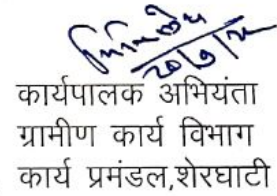 कार्यपालक अभियंता
ग्रामीण कार्य विभाग
कार्य प्रमंडल,शेरघाटी